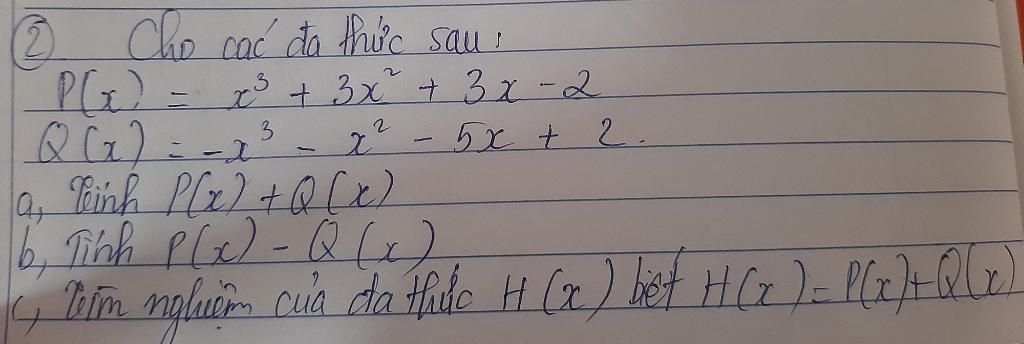 ② Cho các đa thức sau:
P(x) = x³ + 3x² + 3x - 2
Q(x) = -x³ - x² - 5x + 2.
a, Tính P(x) + Q(x)
b, Tính P(x) - Q(x)
c, Tìm nghiệm của đa thức H(x) biết H(x) = P(x) + Q(x)